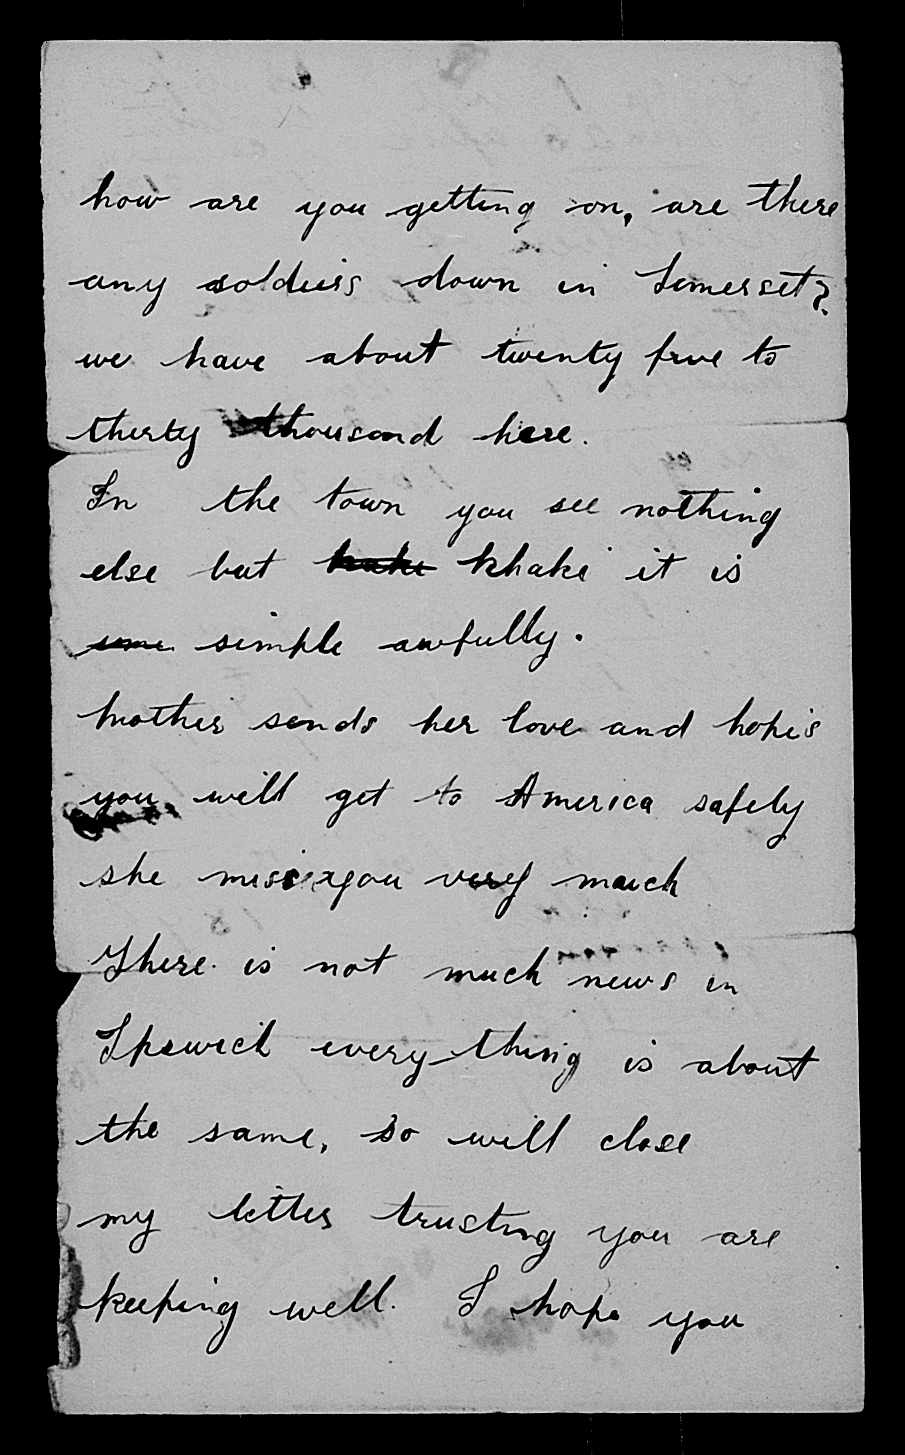 how are you getting on, are there
any soldiers down in Somerset?
we have about twenty five to
thirty thousand here.
In the town you see nothing
else but kake khaki it is
simple awfully.
Mother sends her love and hopes
you will get to America safely
she misses you very much
There is not much news in
Ipswich everything is about
the same, so will close
my letter trusting you are
keeping well. I hope you